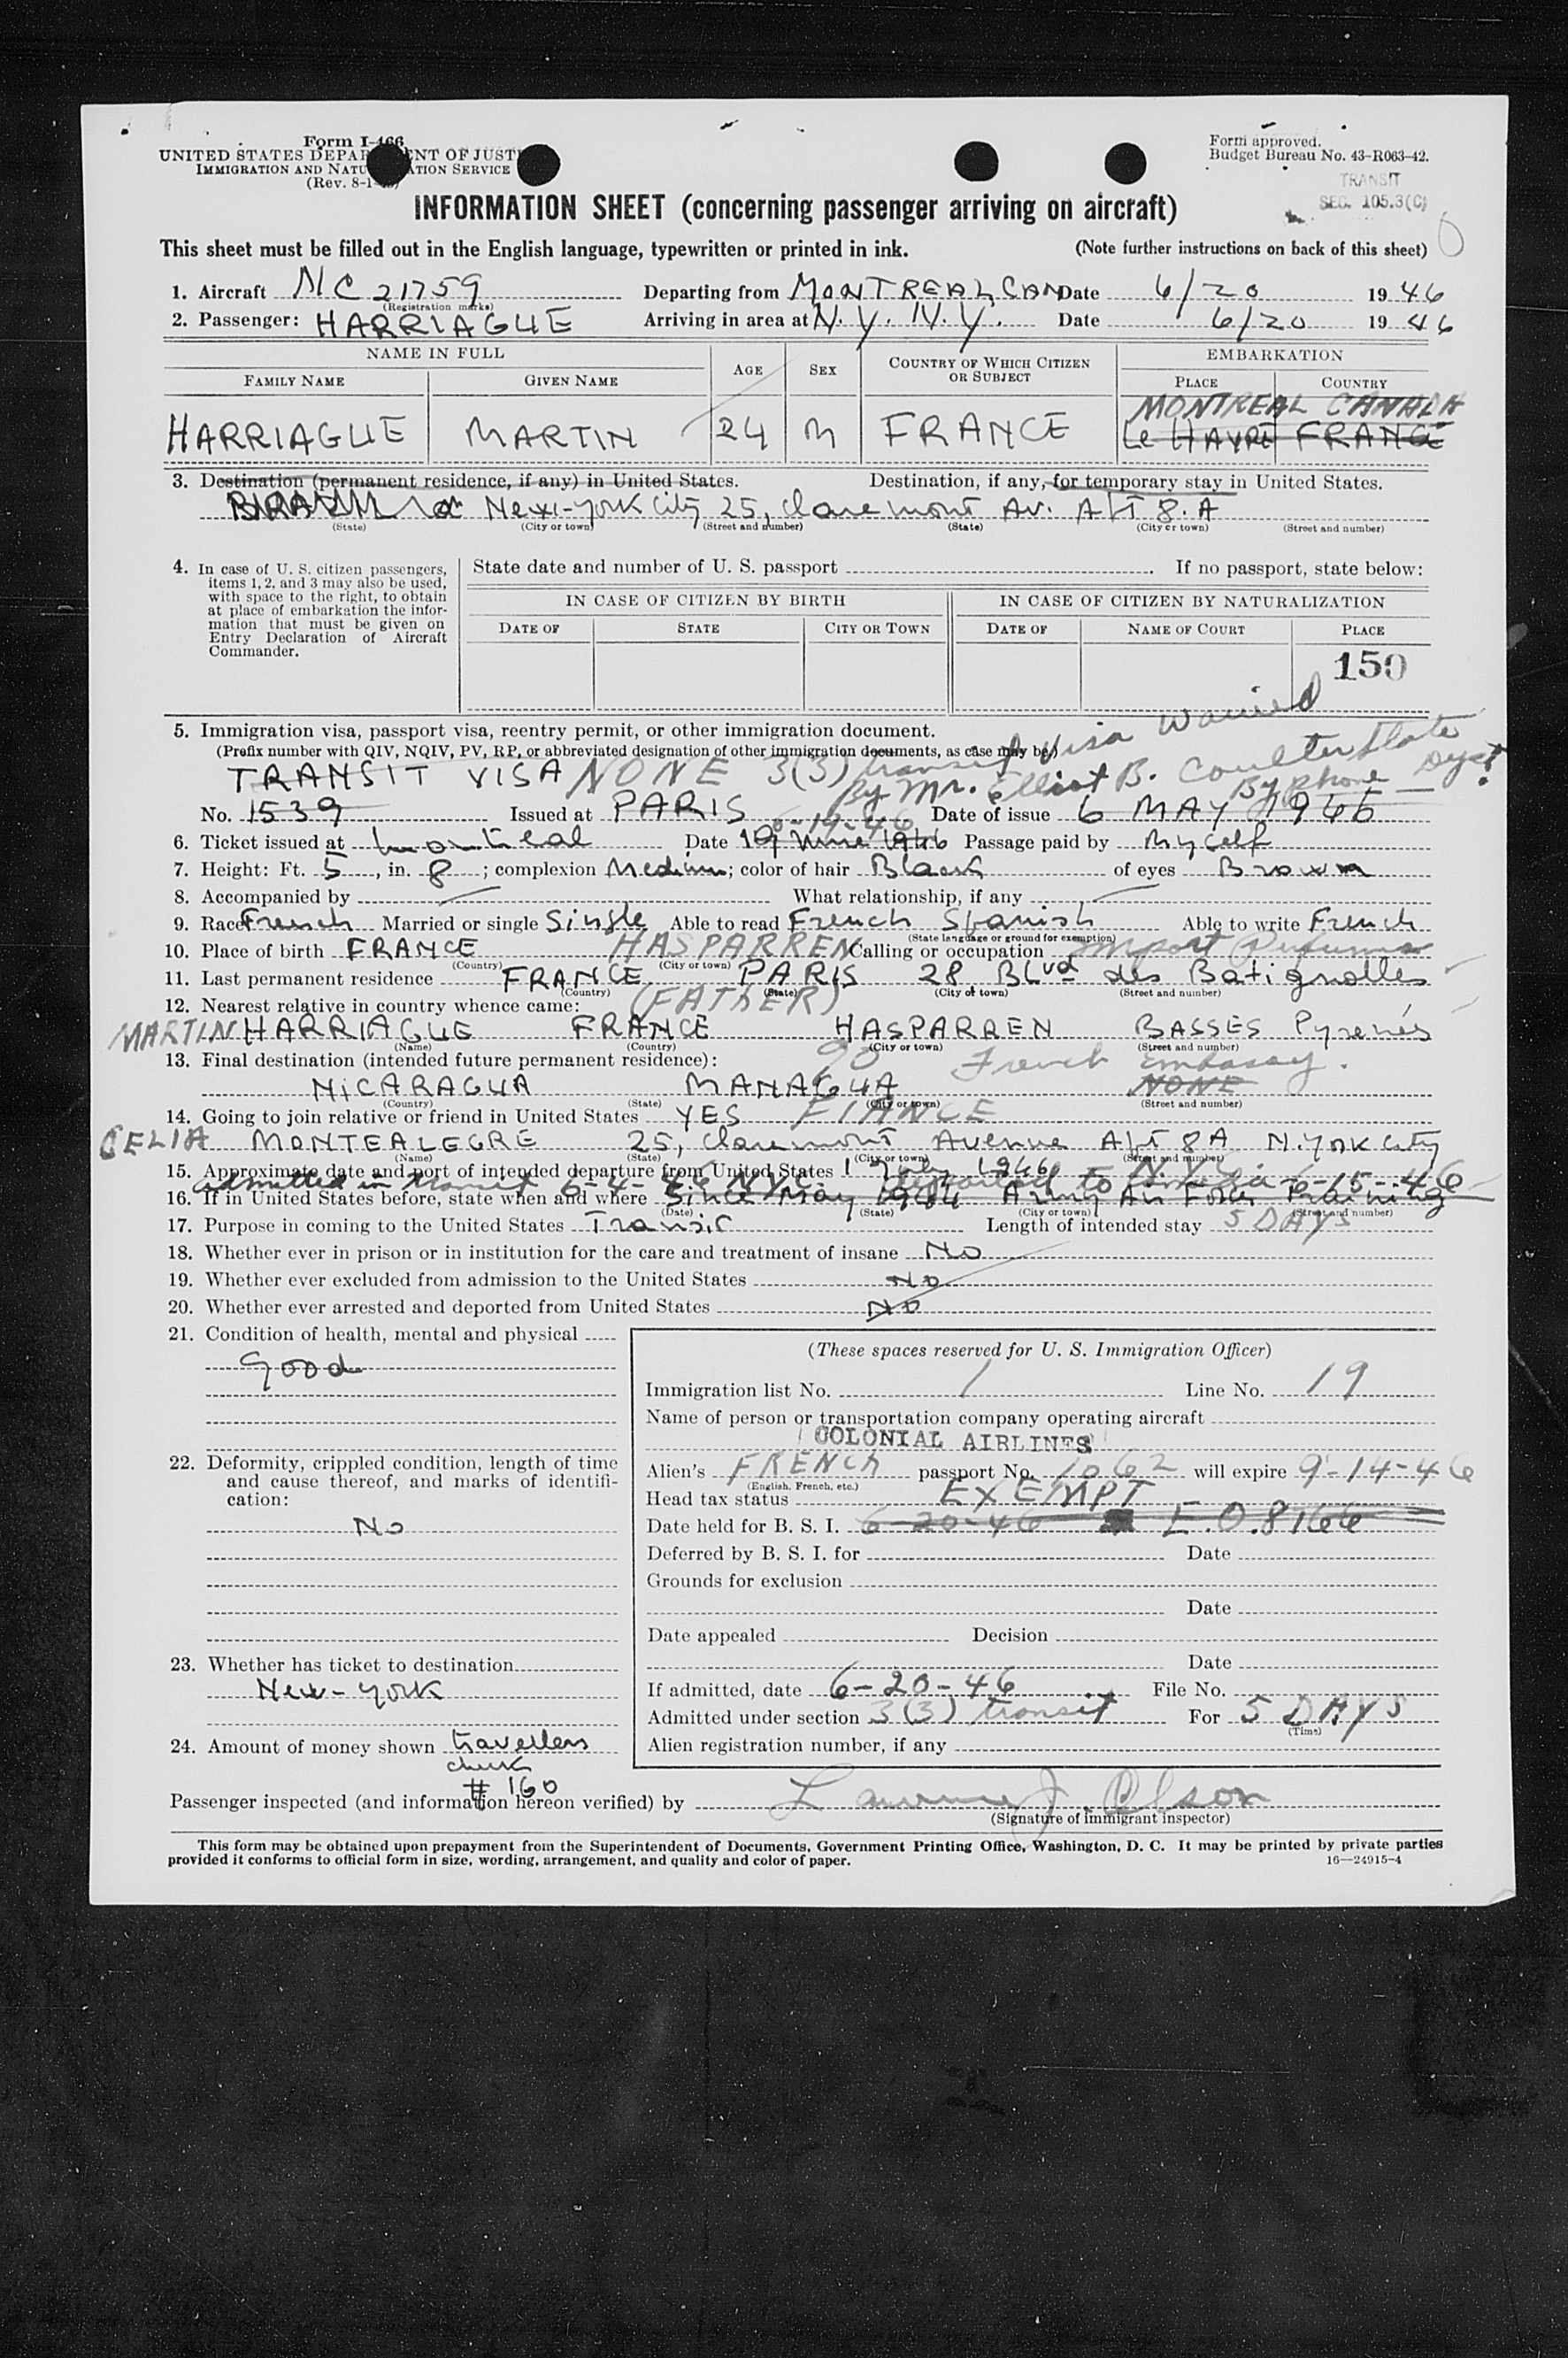 Form I-466
UNITED STATES DEPARTMENT OF JUSTICE
IMMIGRATION AND NATURALIZATION SERVICE
(Rev. 8-1-
Form approved.
Budget Bureau No. 43-R063-42.
TRANSIT
SEC. 105.3(C)
INFORMATION SHEET (concerning passenger arriving on aircraft)
This sheet must be filled out in the English language, typewritten or printed in ink. (Note further instructions on back of this sheet)
1. Aircraft NC 21759 Departing from MONTREAL, CAN Date 6/20 1946
(Registration marks)
2. Passenger: HARRIAGUE Arriving in area at N.Y. N.Y. Date 6/20 1946
NAME IN FULL AGE SEX COUNTRY OF WHICH CITIZEN OR SUBJECT EMBARKATION
FAMILY NAME GIVEN NAME PLACE COUNTRY
MONTREAL CANADA
HARRIAGUE MARTIN 24 M FRANCE Le HAVRE FRANCE
3. Destination (permanent residence, if any) in United States. Destination, if any, for temporary stay in United States.
New-York City 25, Claremont Av. APT 8.A
(State) (City or town) (Street and number) (State) (City or town) (Street and number)
4. In case of U. S. citizen passengers, items 1, 2, and 3 may also be used, with space to the right, to obtain at place of embarkation the information that must be given on Entry Declaration of Aircraft Commander.
State date and number of U. S. passport If no passport, state below:
IN CASE OF CITIZEN BY BIRTH IN CASE OF CITIZEN BY NATURALIZATION
DATE OF STATE CITY OR TOWN DATE OF NAME OF COURT PLACE
150
5. Immigration visa, passport visa, reentry permit, or other immigration document.
(Prefix number with QIV, NQIV, PV, RP, or abbreviated designation of other immigration documents, as case may be.)
TRANSIT VISA NONE 3(3) transit Visa waived
By Mr. Elliot B. Coulter State Dept
By phone
No. 1539 Issued at PARIS Date of issue 6 MAY 1946
6-19-46
6. Ticket issued at Montreal Date 19 June 1946 Passage paid by Myself
7. Height: Ft. 5, in. 8; complexion Medium; color of hair Black of eyes Brown
8. Accompanied by What relationship, if any
9. Race French Married or single Single Able to read French Spanish Able to write French
(State language or ground for exemption)
10. Place of birth FRANCE HASPARREN Calling or occupation Import
(Country) (City or town)
11. Last permanent residence FRANCE PARIS 28 BLvd des Batignolles
(Country) (State) (City or town) (Street and number)
12. Nearest relative in country whence came: (FATHER)
MARTIN HARRIAGUE FRANCE HASPARREN BASSES Pyrenées
(Name) (Country) (City or town) (Street and number)
13. Final destination (intended future permanent residence): French Embassy.
NICARAGUA MANAGUA NONE
(Country) (State) (City or town) (Street and number)
14. Going to join relative or friend in United States YES FIANCE
CELIA MONTEALEGRE 25, Claremont Avenue APT 8A N. York City
(Name) (State) (City or town) (Street and number)
15. Approximate date and port of intended departure from United States 1 July 1946 N.Y.C.
admitted in transit 6-4-46 N.Y.C. departed to Canada 6-15-46
16. If in United States before, state when and where Since May 1944 Army Air Force Training
(Date) (State) (City or town) (Street and number)
17. Purpose in coming to the United States Transit Length of intended stay 5 DAYS
18. Whether ever in prison or in institution for the care and treatment of insane No
19. Whether ever excluded from admission to the United States No
20. Whether ever arrested and deported from United States No
21. Condition of health, mental and physical
Good
22. Deformity, crippled condition, length of time and cause thereof, and marks of identification:
No
23. Whether has ticket to destination
New-York
24. Amount of money shown travellers
checks
# 160
(These spaces reserved for U. S. Immigration Officer)
Immigration list No. 1 Line No. 19
Name of person or transportation company operating aircraft
COLONIAL AIRLINES
Alien's FRENCH passport No. 1062 will expire 9-14-46
(English, French, etc.)
Head tax status EXEMPT
Date held for B. S. I. 6-20-46 E.O. 8766
Deferred by B. S. I. for Date
Grounds for exclusion
Date
Date appealed Decision
Date
If admitted, date 6-20-46 File No.
Admitted under section 3(3) transit For 5 DAYS
(Time)
Alien registration number, if any
Passenger inspected (and information hereon verified) by Lawrence J. Olson
(Signature of immigrant inspector)
This form may be obtained upon prepayment from the Superintendent of Documents, Government Printing Office, Washington, D. C. It may be printed by private parties
provided it conforms to official form in size, wording, arrangement, and quality and color of paper. 16—24915-4